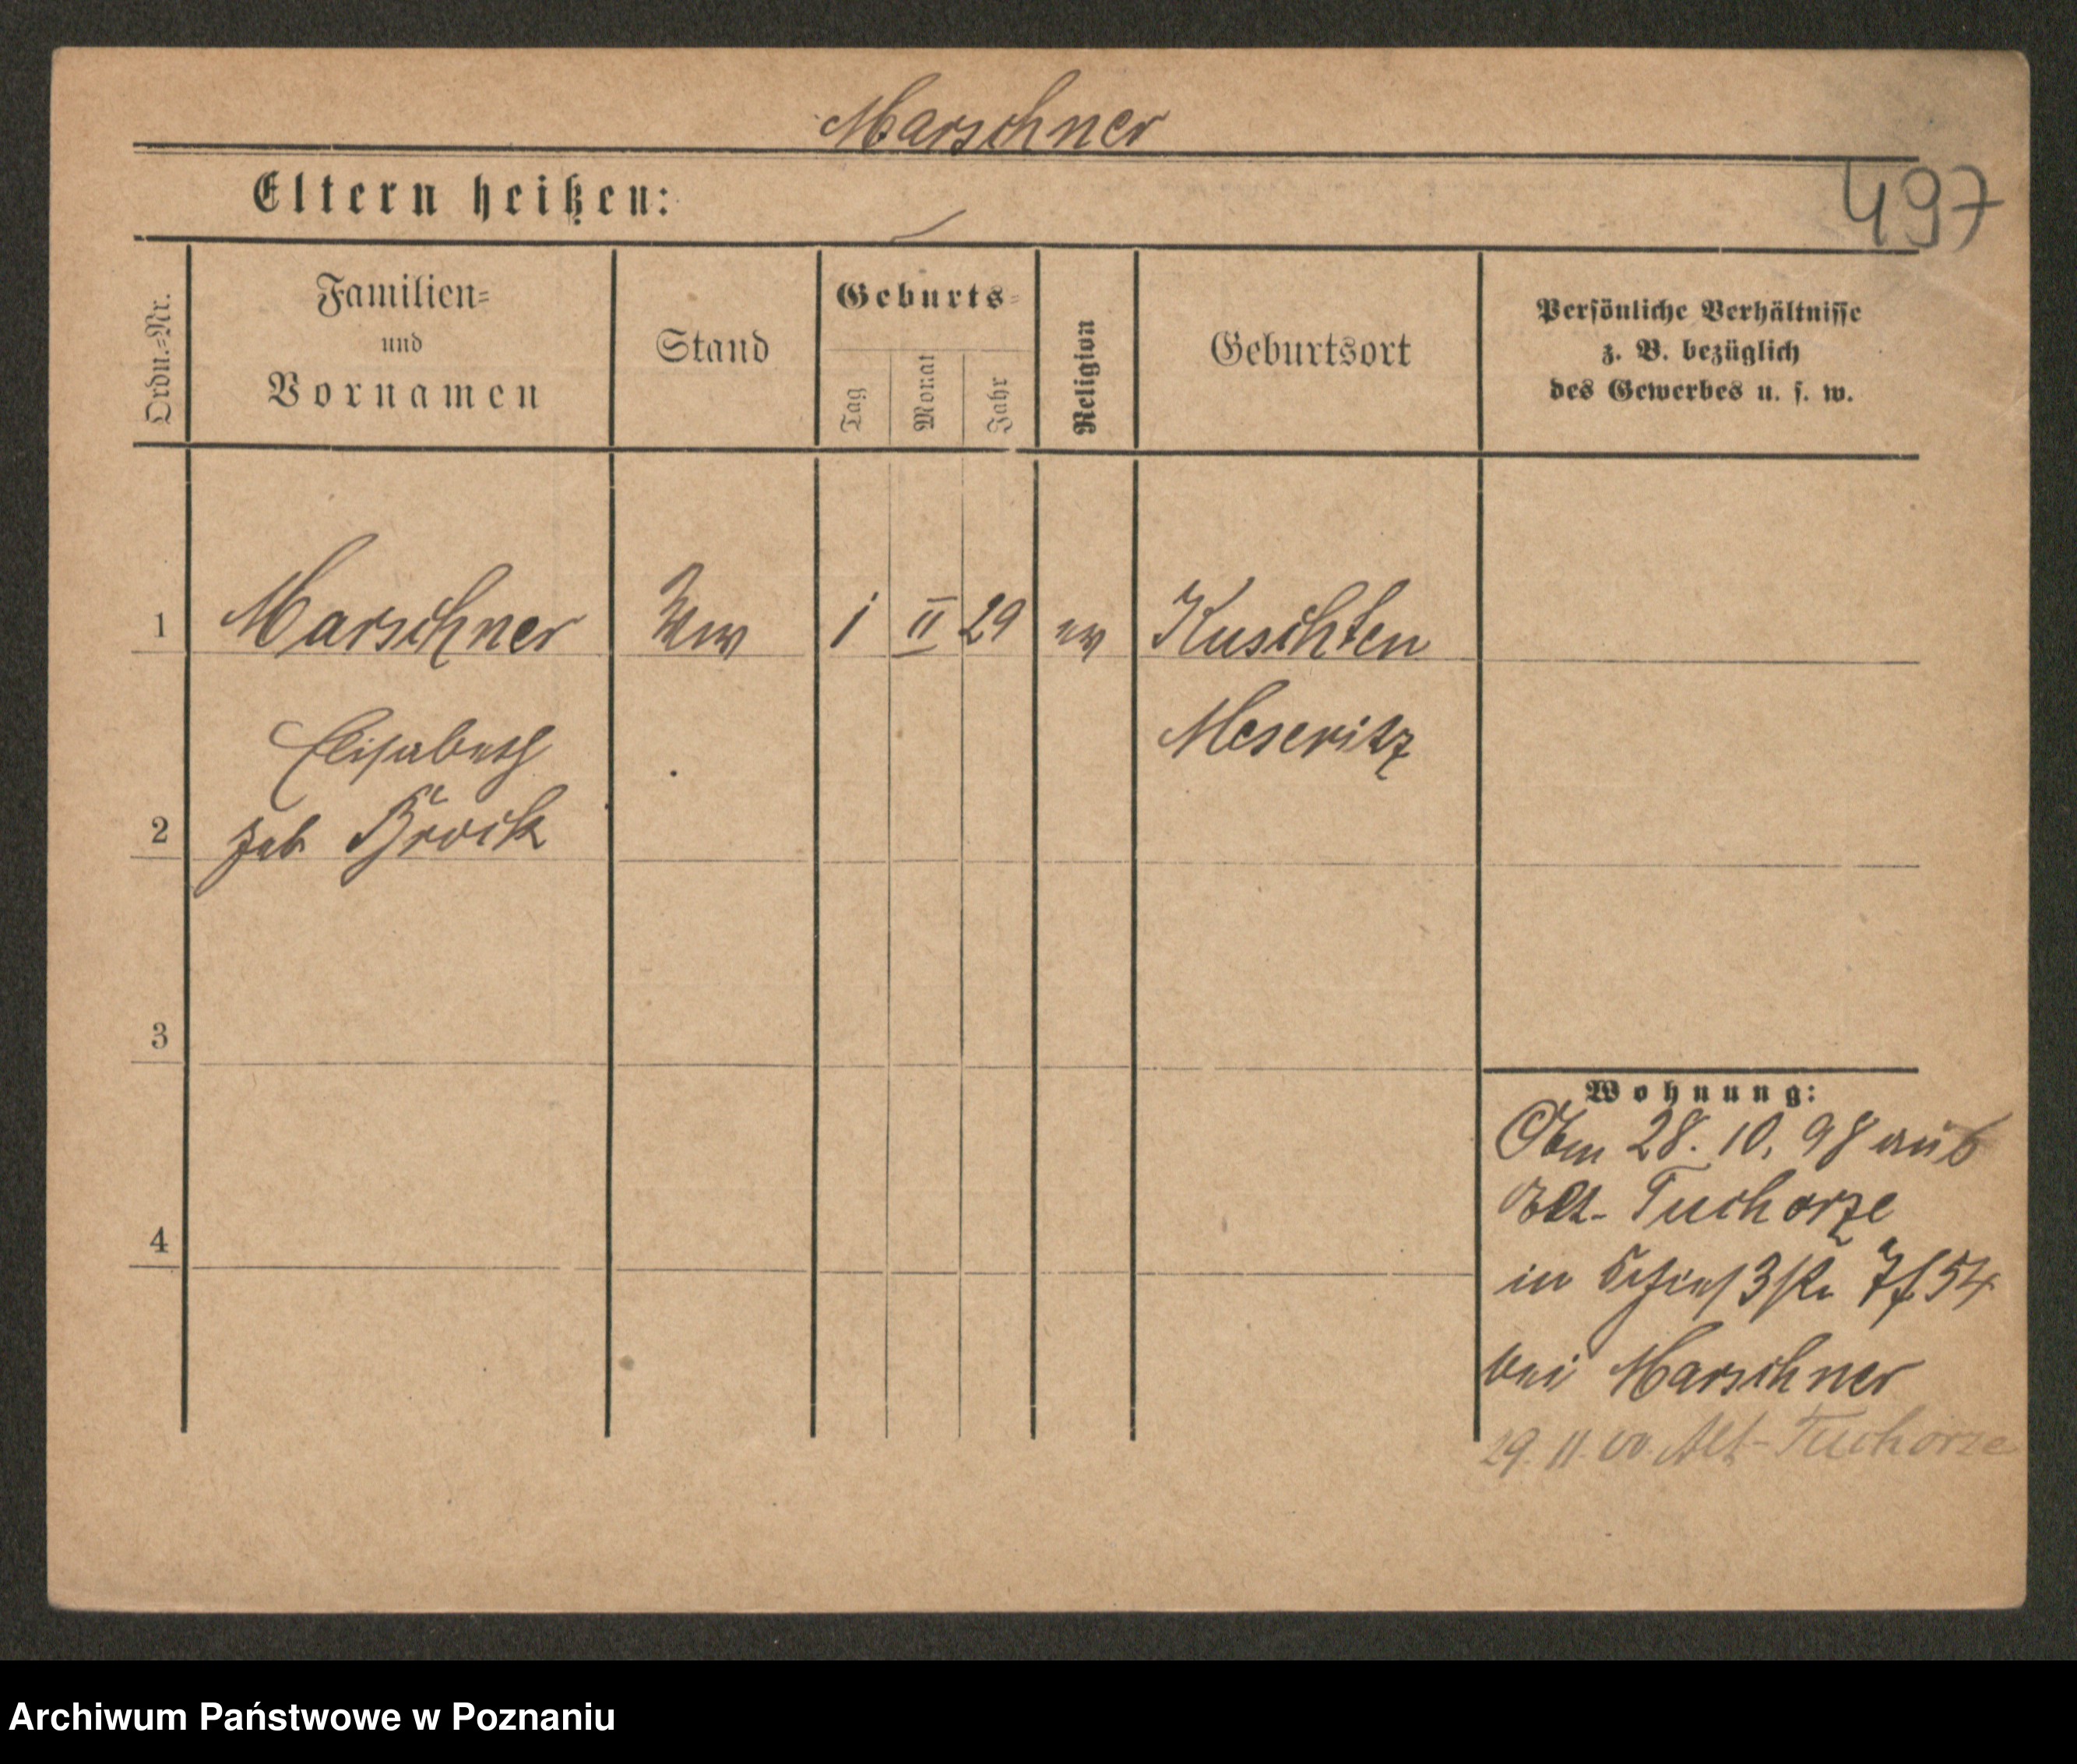 Marschner
Eltern heißen:
497
Ordn.=Nr.
Familien=
und
Vornamen
Stand
Geburts=
Tag
Monat
Jahr
Religion
Geburtsort
Persönliche Verhältnisse
z. B. bezüglich
des Gewerbes u. s. w.
1
Marschner
Ww
1
II
29
ev
Kuschten
Elisabeth
Meseritz
2
geb Brock
3
4
Wohnung:
28. 10. 98 aus
Alt- Tuchorze
in 54
bei Marschner
29. 11. 00. Alt-Tuchorze
Archiwum Państwowe w Poznaniu